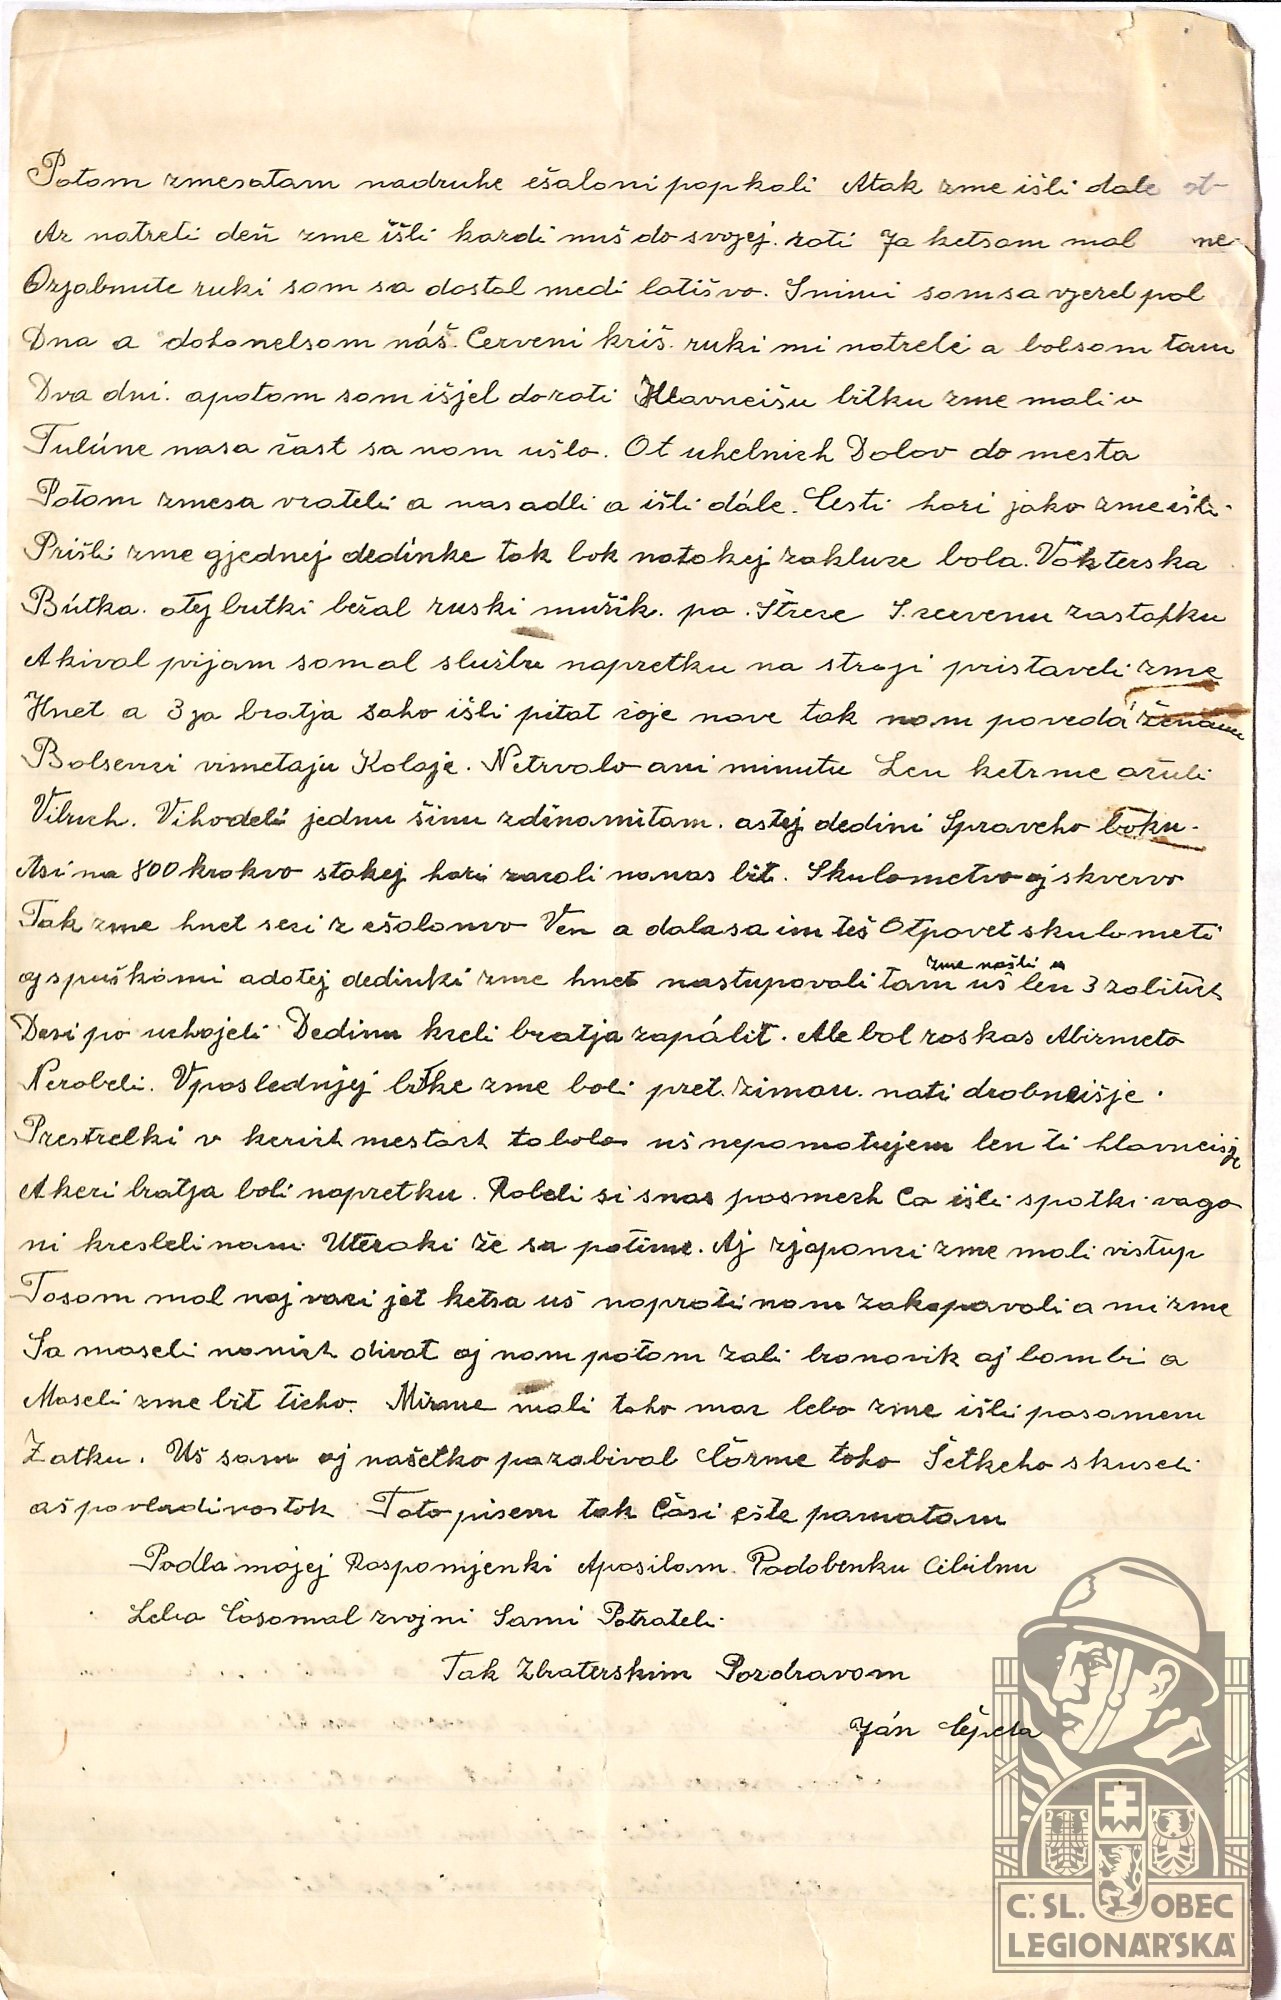 Potom zmesatam nadruhe ešaloni popkali Atak zme išli dale ot
Az natreti deň zme išli kazdi nuš do svojej roti Ja ketsom mal ne
Ozjabnute ruki som sa dostal medi lotišvo. Snimi somsa vjezel pol
Dna a dohonelsom náš. Cerveni kriš. ruki mi natreli a bolsom tam
Dva dni. apotom som išjel do roti Hlavneišu bitku zme mali v
Tulúne nasa čast sa nom ušlo. Ot uhelnich Dolov do mesta
Potom zmesa vrateli a nasadli a išli dále. Cesti hori jako zme išli.
Prišli zme gjednej dedinke tak bok natakej zakluze bola. Vakterska
Bútka. otej butki bežal ruski mužik. po. Štreze S. zervenu zastafku
Akival pijam somal službu napretku na stroji pristaveli zme
Hnet a 3 ja bratja saho išli pitat čoje nove tak nom poveda ženám
Bolsevici vimetaju Kolaje. Netrvalo ani minutu Len ketzme ačuli
Vibuch. Vihodeli jednu šinu zdinamitom. astej dedini Spraveho boku.
Asi na 800 krokvo stakej hori zacali nanas bit. Skulometvo aj skvervo
Tak zme hnet sezi z ešalonvo Ven a dalasa im teš Otpovet skulometi
aj spuškami adotej dedinki zme hnet nastupovali tam uš zme našli a len 3 zabitich
Desi po uchojeli Dedinu kceli bratja zapálit. Ale bol roskas Abizmeto
Nerobeli. Vposlednjej bitke zme boli pret. zimou. nati drobneišje.
Prestrelki v kerich mestach tobolo uš nepamatujem len ti hlavneišje
Akeri bratja boli napretku. Robeli si snas posmech Ca išli spatki vago
ni kresleli nam Uteraki že sa potime. Aj zjaponci zme mali vistup
Tosom mal naj vaci jet ketsa uš naproti nam zakopavali a mi zme
Sa moseli nanich divat aj nam potom zali bronovik aj bombi a
Moseli zme bit ticho. Mizme mali toho moc lebo zme išli posamem
Zatku. Uš som aj našetko pozabival Čozme toho Šetkeho skuseli
aš povladivostok Toto pisem tak Časi ešte pamatam
Podla mojej Rospomjenki Aposilam. Podobenku Cibilnu
Lebo Čosomal zvojni Sami Potrateli.
Tak Zbraterskim Pozdravom
Ján Čepela
Č. SL. OBEC
LEGIONÁŘSKÁ